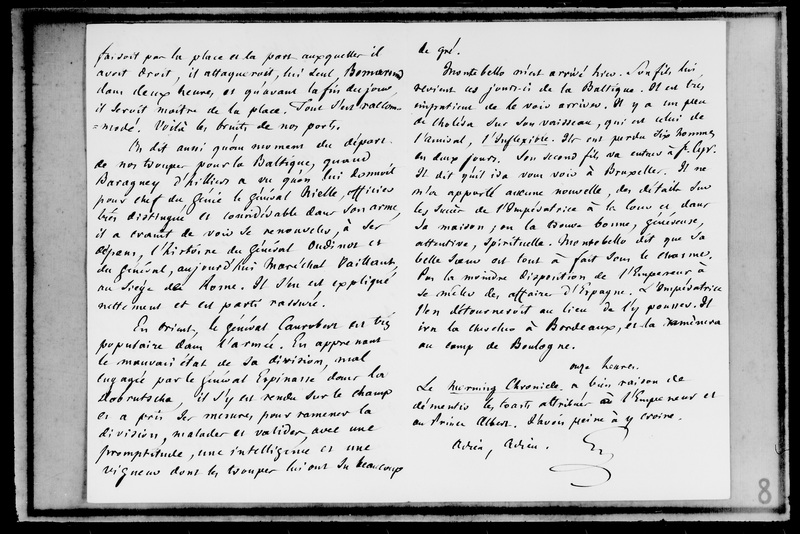 faisoit pas la place et la part auxquelles il
avoit droit, il attaqueroit, lui seul, Bomarsund
dans deux heures et qu'avant la fin du jour,
il seroit maître de la place. Tout s'est raccom-
=modé. Voilà les bruits de nos ports.
On dit aussi qu'au moment du départ
de nos troupes pour la Baltique, quand
Baraguey d'hilliers a vu qu'on lui donnoit
pour chef du génie le général Nielle, officier
très distingué et considérable dans son arme,
il a craint de voir se renouveler, à ses
dépens, l'histoire du général Oudinot et
du général, aujourd'hui Maréchal Vaillant,
au siège de Rome. Il s'en est expliqué
nettement et est parti rassuré.
En Orient, le général Canrobert est très
populaire dans l'armée. En apprenant
le mauvais état de sa division, mal
engagée par le général Espinasse dans la
Dobrutscha, il s'y est rendu sur le champ
et a pris ses mesures pour ramener la
division, malades et valides, avec une
promptitude, une intelligence et une
vigueur dont les troupes lui ont su beaucoup
de gré.
Montebello m'est arrivé hier. Son fils lui
revient ces jours-ci de la Baltique. Il est très
impatient de le voir arriver. Il y a un peu
de choléra sur son vaisseau, qui est celui de
l'amiral, l'Inflexible. Ils ont perdu six hommes
en deux jours. Son second fils va entrer à St. Cyr.
Il dit qu'il ira vous voir à Bruxelles. Il ne
m'a apporté aucune nouvelle, des détails sur
les succès de l'Impératrice à la cour et dans
sa maison; on la trouve bonne, généreuse,
attentive, spirituelle. Montebello dit que sa
belle sœur est tout à fait sous le charme.
Pas la moindre disposition de l'Empereur à
se mêler des affaires d'Espagne. L'Impératrice
l'en détourneroit au lieu de l'y pousser. Il
ira la chercher à Bordeaux, et la ramènera
au camp de Boulogne.
onze heures.
Le Morning Chronicle a bien raison de
démentir les toasts attribués à l'Empereur et
au Prince Albert. J'avois peine à y croire.
Adieu, Adieu.
8